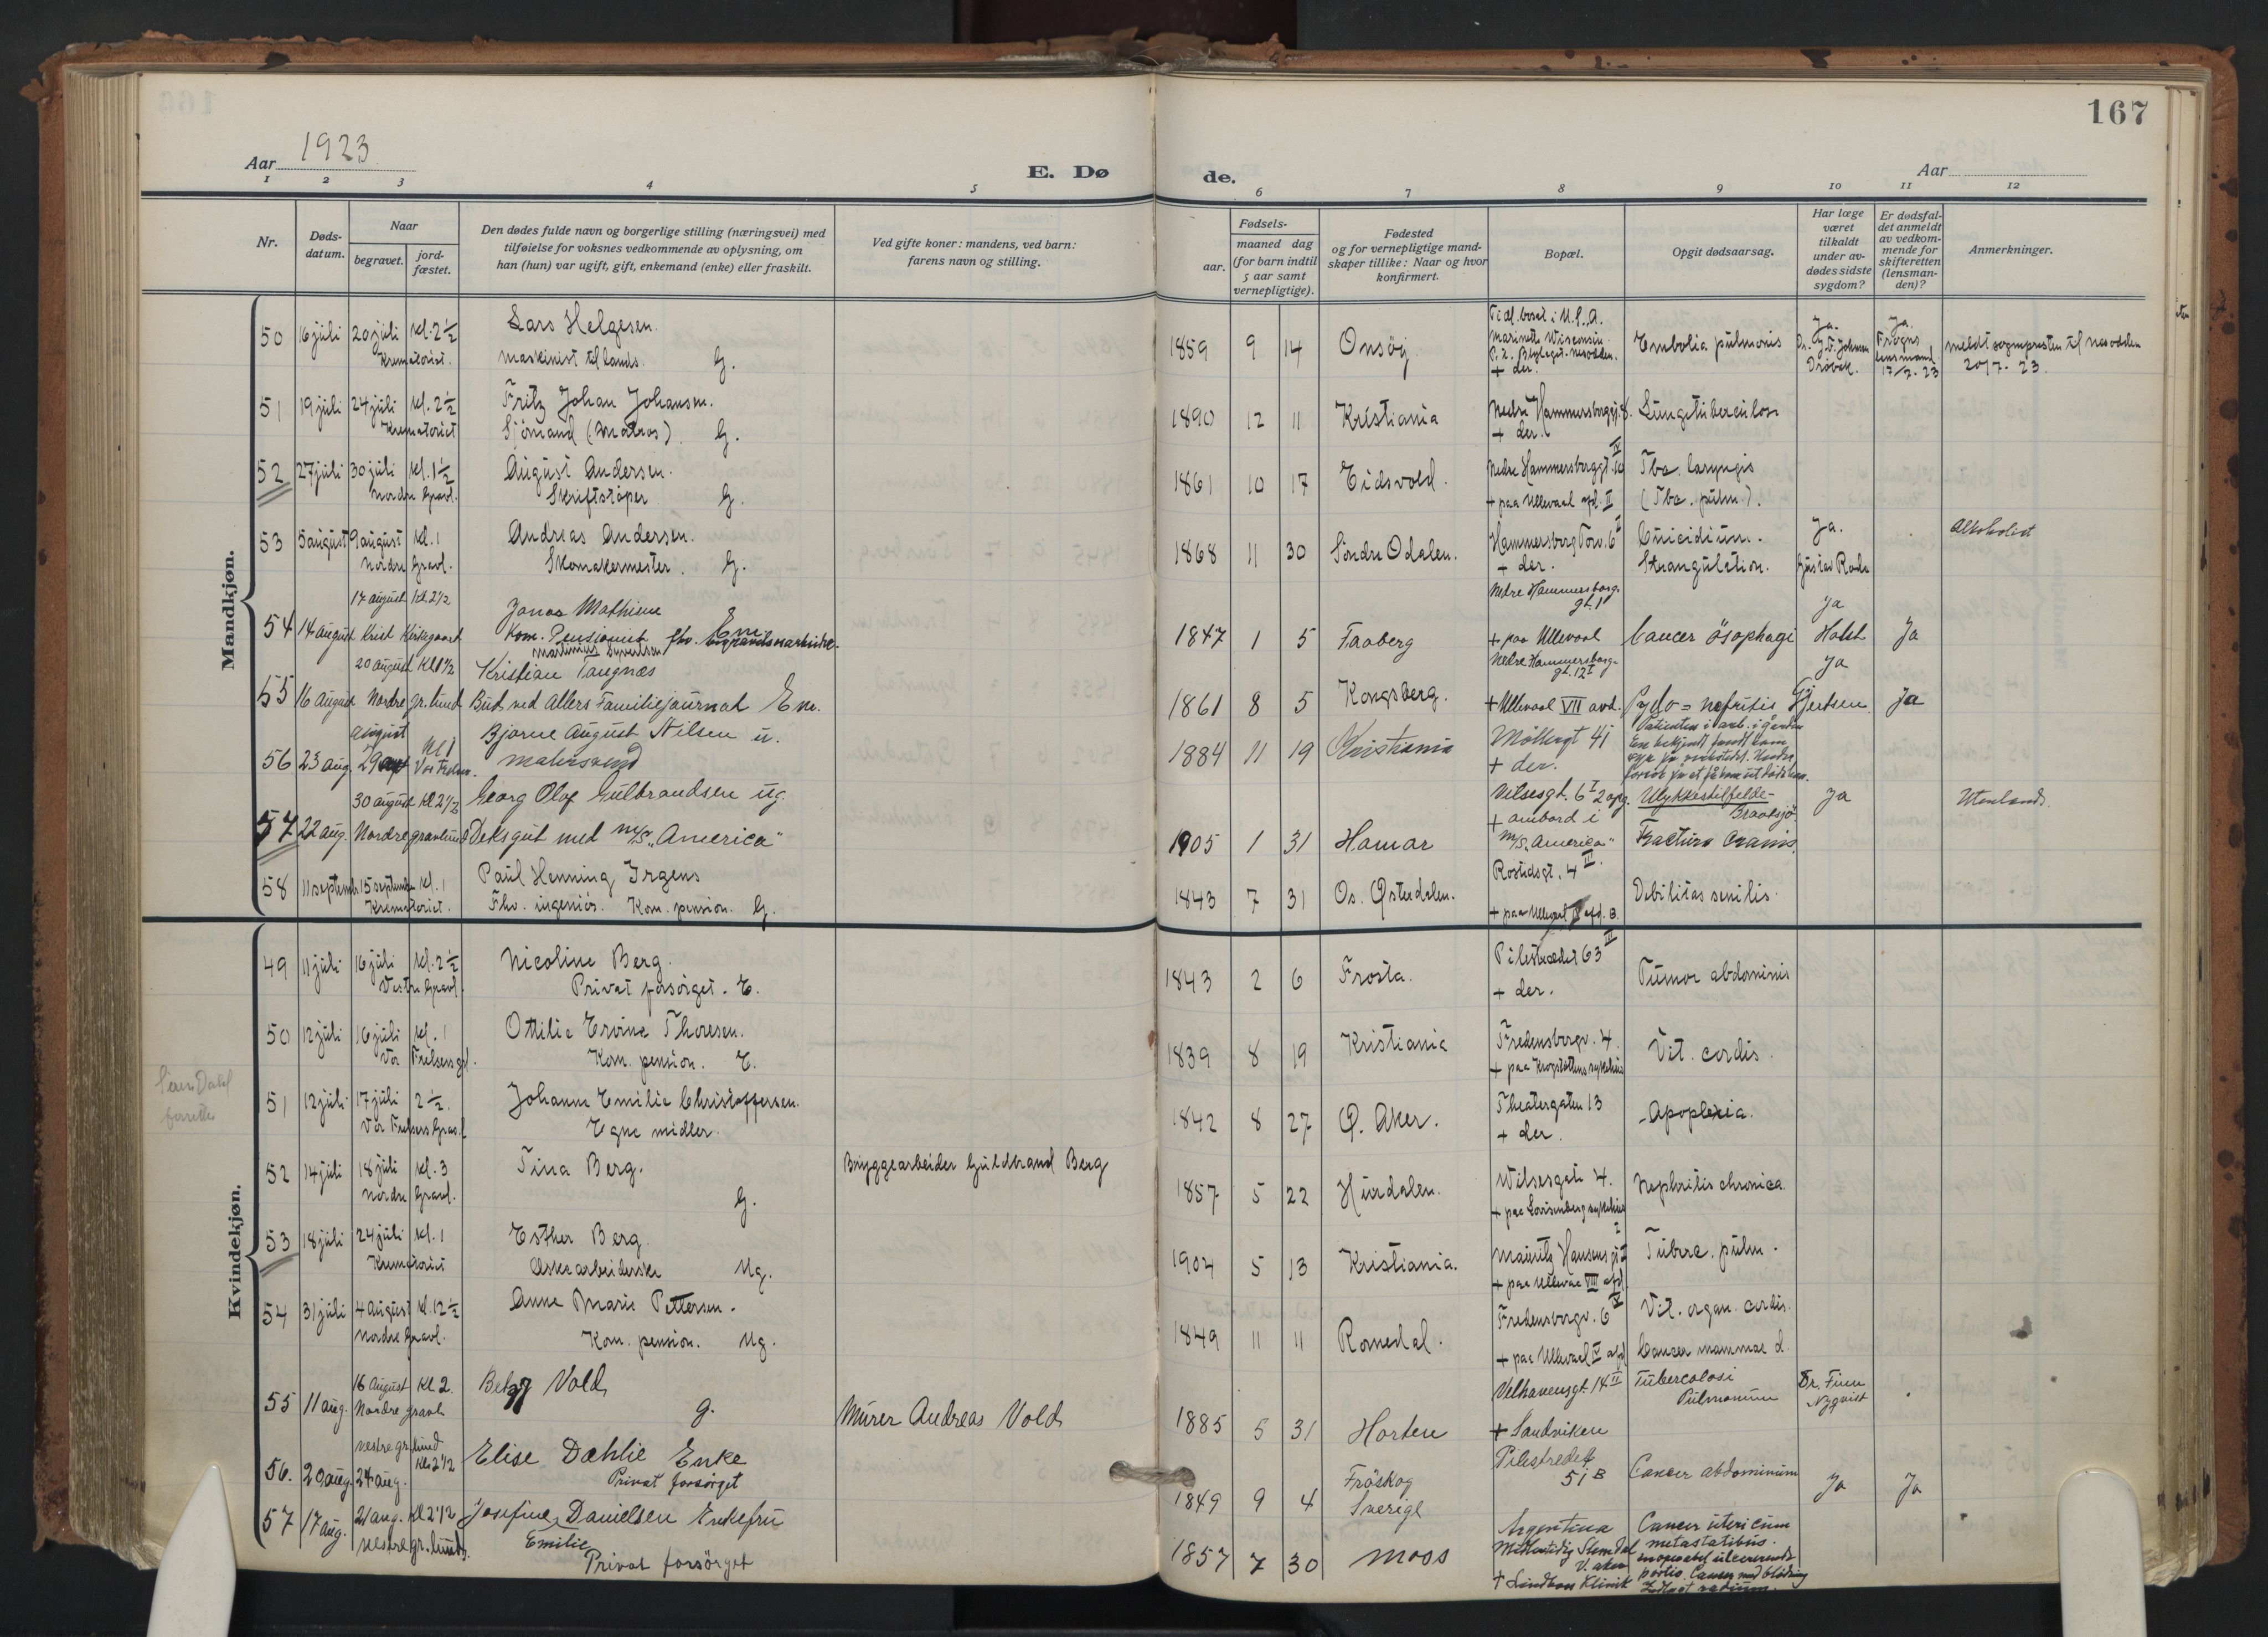 167
Aar 1923
E. Dø de.
Aar
1 2 3 4 5 6 7 8 9 10 11 12
Nr.
Døds-
datum.
Naar
begravet.
jord-
fæstet.
Den dødes fulde navn og borgerlige stilling (næringsvei) med
tilføielse for voksnes vedkommende av oplysning, om
han (hun) var ugift, gift, enkemand (enke) eller fraskilt.
Ved gifte koner: mandens, ved barn:
farens navn og stilling.
Fødsels-
aar.
maaned dag
(for barn indtil
5 aar samt
vernepligtige).
Fødested
og for vernepligtige mand-
skaper tillike: Naar og hvor
konfirmert.
Bopæl.
Opgit dødsaarsag.
Har læge
været
tilkaldt
under av-
dødes sidste
sygdom?
Er dødsfal-
det anmeldt
av vedkom-
mende for
skifteretten
(lensman-
den)?
Anmerkninger.
Mandkjøn.
50 16 juli 20 juli kl. 2½
Krematoriet.
Lars Helgesen.
Maskinist til lands. G.
1859 9 14 Onsøy
Tidl. bosat i U.S.A.
Marinette Wisconsin.
+ der.
Embolia pulmonis
Ja.
Drøbak.
Ja.
Frogns
lensmand
17/7. 23
meldt sognepresten til Nesodden
20/7. 23.
51 19 juli 24 juli kl. 2½
Krematoriet
Fritz Johan Johansen.
Sjömand (Matros). G.
1890 12 11 Kristiania
Nedre Hammersborggt. 8.
+ der.
Lungetuberculose
52 27 juli 30 juli kl. 1½
Nordre Gravl.
August Andersen.
Skriftstöper G.
1861 10 17 Eidsvold.
Nedre Hammersborggt. 10 IV
+ paa Ullevaal afd. II
Tbc. laryngis
(Tbc. pulm.).
53 5 august 9 august kl. 1
Nordre Gravl.
Andreas Andersen.
Skomakermester. G.
1868 11 30 Söndre Odalen.
Hammersborg Torv. 6 I
+ der.
Suicidium.
Strangulation.
Ja.
Gustav Rode
Alkoholist
54 14 august 17 august Kl. 2½
Krist Kirkegaard
Jonas Mathiesen
Kom. Pensionist fhv. Em.
1847 1 5 Faaberg
Nedre Hammersborg-
gt. 1
+ paa Ullevaal
Cancer ösophagi
Ja
Holst
Ja
55 16 august 20 august Kl 1½
Nordre gr. lund
Martinius Syvertsen
Kristian Tangnæs
Bud ved Allers Familiejournal Em.
1861 8 5 Kongsberg.
Nedre Hammersborg-
gt. 12 I
+ Ullevaal VII avd.
Pyelo = nefritis
Ja
Gjertsen.
Ja
56 23 aug. august
29 Kl 1
Vor Frelser.
Bjarne August Nilsen u.
malersvend
1884 11 19 Kristiania
Möllergt 41
+ der.
57 22 aug. 30 august Kl 2½
Nordre gravlund
Georg Olaf Gulbrandsen ug.
Deksgut med m/s. "America"
1905 1 31 Hamar
Vilsesgt. 6 I 2 opg.
+ ombord i
m/s. "America"
Ulykkestilfelde-
Braatsjö.
Fractura Cranii.
Ja
Utenlands.
58 11 september 15 september kl. 1
Krematoriet.
Paul Henning Irgens
Fhv. ingeniör. Kom. pension. G.
1843 7 31 Os. Østerdalen.
Rostedsgt. 4 II.
+ paa Ullevaal afd. B.
Debilitas senilis.
Kvindekjøn.
49 11 juli 16 juli kl. 2½
Vestre Gravl.
Nicoline Berg.
Privat forsörget. E.
1843 2 6 Frosta.
Pilestredet 63 III
+ der.
Tumor abdominis
50 12 juli 16 juli kl. 1
Vor Frelsers gvl.
Ottilie Ervine Thoresen.
Kom. pension. E.
1839 8 19 Kristiania
Fredensborgv. 4.
+ paa Krogstöttens sykehus
Vit. cordis.
51 12 juli 17 juli 2½.
Vor Frelsers Gravl
Johanne Emilie Christoffersen.
Egne midler.
1842 8 27 Ø. Aker.
Theatergaten 13
+ der.
Apoplexia.
52 14 juli 18 juli kl. 3
Nordre Gravl.
Tina Berg.
G.
Bryggearbeider Guldbrand Berg
1857 5 22 Hurdalen.
Wilsesgate 4.
+ paa Lovisenberg sykehus
Nephritis chronica.
53 18 juli 24 juli kl. 1
Krematoriet
Esther Berg.
Æskearbeiderske Ug.
1904 5 13 Kristiania.
Mauritz Hansens gt
+ paa Ullevaal VIII afd
Tuberc. pulm.
54 31 juli 4 august kl. 12½
Nordre Gravl.
Anne Marie Pettersen.
Kom. pension. Ug.
1849 11 11 Romedal.
Fredensborgv. 6
+ paa Ullevaal afd
Vit. organ. cordis.
Cancer mammae d.
55 11 aug. 16 August Kl 2.
Nordre gravl.
Betzy Vold
g.
Murer Andreas Vold
1885 5 31 Horten
Velhavensgt. 14 II
+ Sandviken
Tuberculosi
Pulmonum
Dr. Finn
Nyquist
56. 20 aug. 24 aug. Kl. 2½
Vestre gr. lund
Elise Dæhlie Enke
Privat forsörget
1849 9 4 Fröskog
Sverige
Pilestredet
51 B
Cancer abdominum
Ja Ja
57 17 aug. 21 aug. Kl 2½
Vestre gr. lund.
Josefine Danielsen Enkefru
Emilie
Privat forsörget
1857 7 30 Moss
Argentina
Midlertidig Stendal
V. aker
+ Lindboes Klinik
Cancer uteri cum
metastatibus.